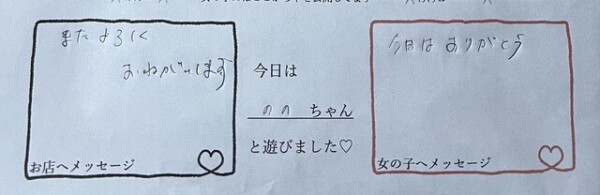 またよろしく
おねがいします
お店へメッセージ
今日は
のの ちゃん
と遊びました♡
今日はありがとう
女の子へメッセージ